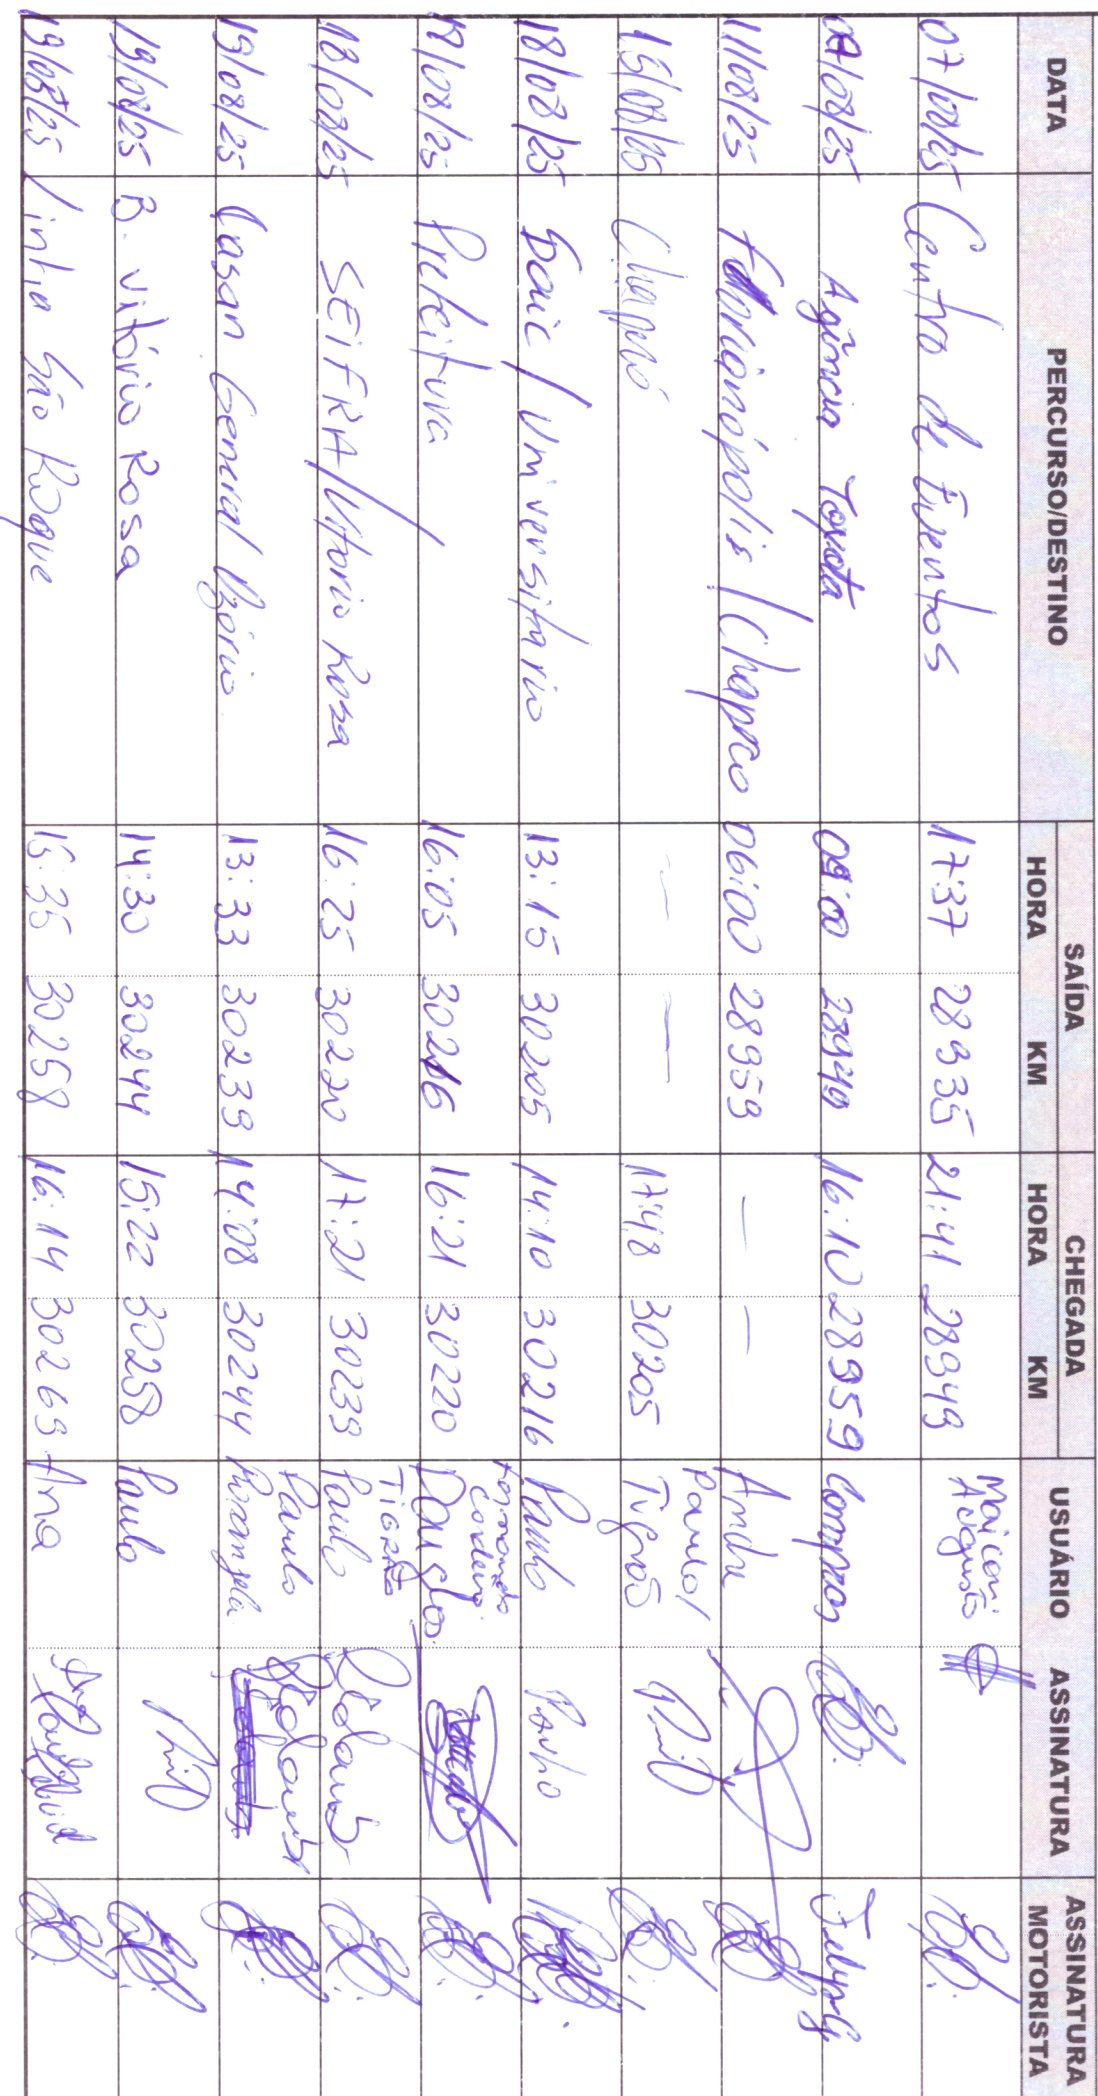 DATA PERCURSO/DESTINO SAÍDA CHEGADA USUÁRIO ASSINATURA ASSINATURA MOTORISTA
HORA KM HORA KM
07/08/25 Centro de Eventos 17:37 28935 21:41 28949 Maicon Augusto
07/08/25 Agência Toyota 09:00 28949 16:10 28959 Campos
11/08/25 Florianópolis / Chapeco 06:00 28959 — — Andre
15/08/25 Chapecó — — 17:48 30205 Paulo / Tignos
18/08/25 Saic / Universitário 13:15 30205 14:10 30216 Paulo Paulo
18/08/25 Prefeitura 16:05 30216 16:21 30220 Fernando Cordeiro Douglas
18/08/25 SEIFRA / Vitorio Rosa 16:25 30220 17:21 30239 Paulo
19/08/25 Casan General Ozório 13:33 30239 14:08 30244 Paulo Rozangela
19/08/25 B. Vitório Rosa 14:30 30244 15:22 30258 Paulo
19/08/25 Linha São Roque 15:35 30258 16:14 30269 Ana